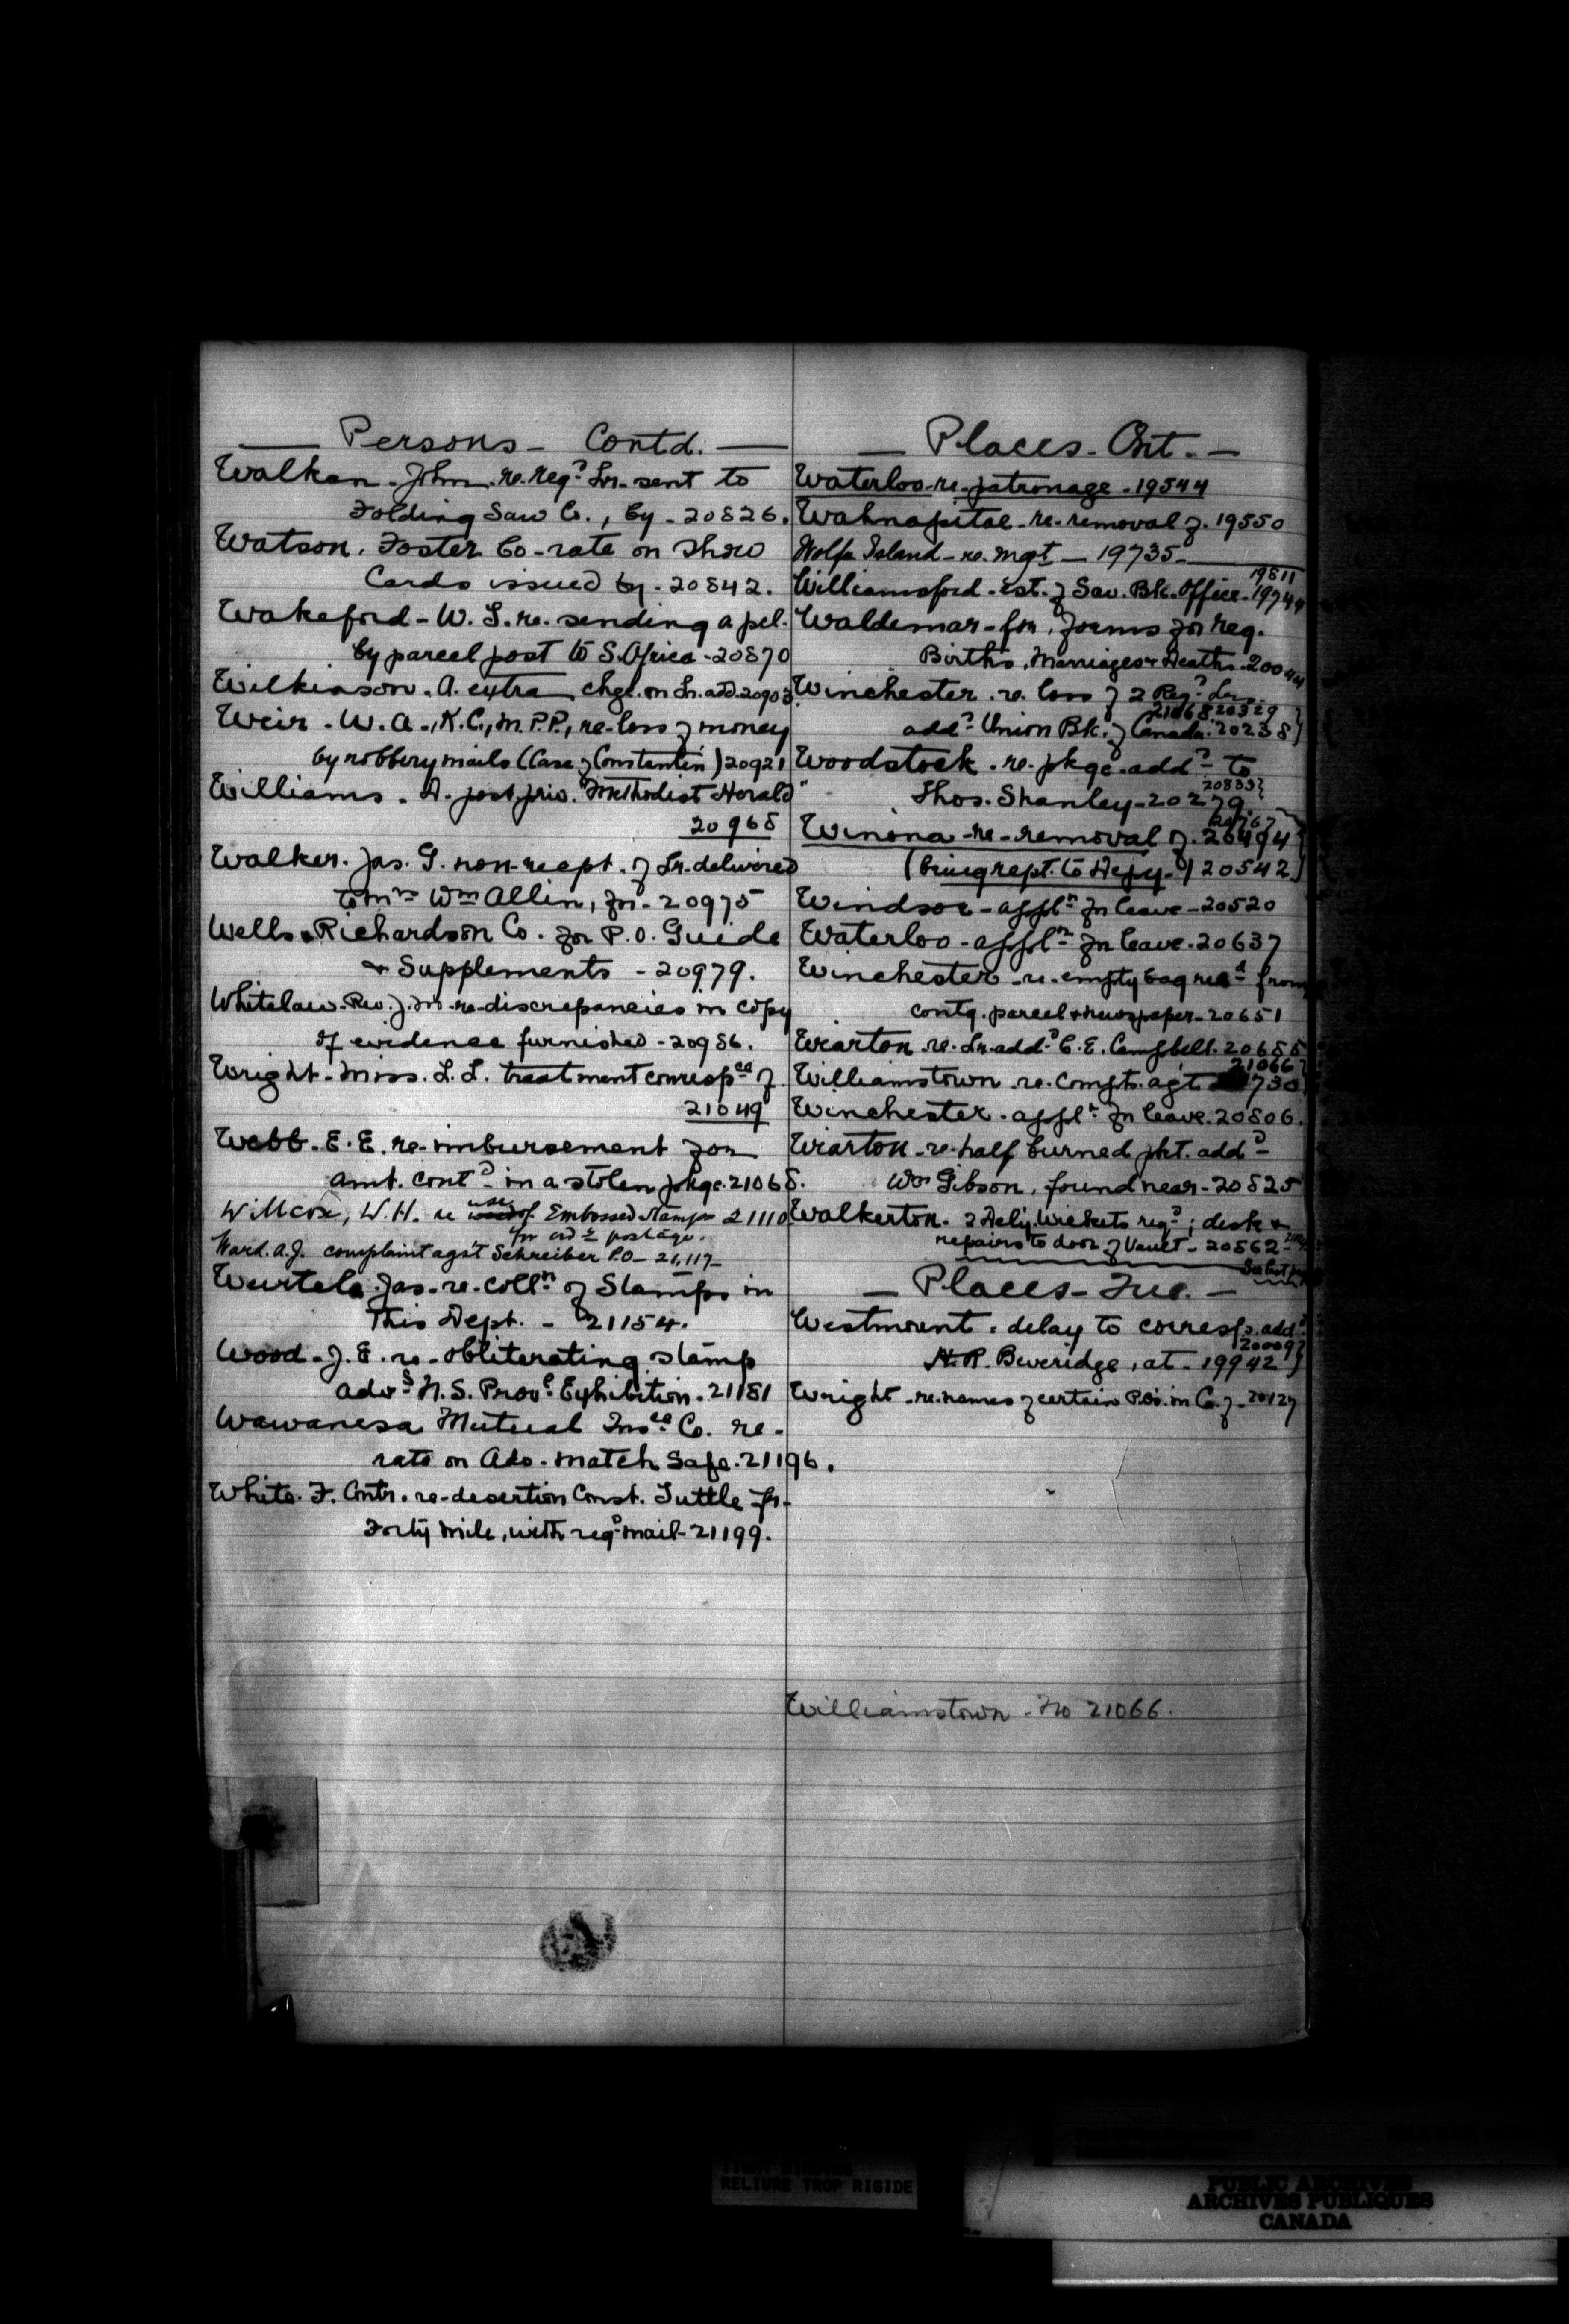 Persons - Contd.
Walken - John - re. reg.d Lr. sent to
Folding Saw Co., by - 20826.
Watson, Foster Co - rate on Show
Cards issued by - 20842.
Wakeford - W. S. re. sending a pcl.
by parcel post to S. Africa - 20870
Wilkinson. A. extra chge. on Lr. add. 20903
Weir - W. A., K.C., M.P.P., re - loss of money
by robbery mails (Case of Constantin) 20921
Williams. A. post. priv. "Methodist Herald"
20968
Walker. Jas. G. non-recpt. of Lr. delivered
to Mrs Wm Allin, for - 20975
Wells & Richardson Co. for P.O. Guide
& Supplements - 20979.
Whitelaw. Rev. J. M. re - discrepancies in copy
of evidence furnished - 20986.
Wright - Miss. L. L. treatment corresp ce of
21049
Webb - E. E. re-imbursement for
amt. cont.d in a stolen pkge. 21068.
Willcox, W. H. re use of Embossed Stamps 21110
for ord'y postage.
Ward. A. J. complaint ags't Schreiber P.O - 21,117 -
Wurtele Jas - re - coll.n of Stamps in
this Dept. - 21154.
Wood - J. E. re - obliterating stamp
adv.g N. S. Prov.l Exhibition. 21181
Wawanesa Mutual Ins.ce Co. re -
rate on Adv. match Safe. 21196.
White. F. Contr. re - desertion Const. Tuttle fr.
Forty mile, with reg.d mail - 21199.
Places - Ont. -
Waterloo - re - patronage - 19544
Wahnapitae - re - removal of. 19550
Wolfe Island - re. mgt - 19735 -
19811
Williamsford - est. of Sav. Bk. Office - 19744
Waldemar - for. forms for reg.
Births, Marriages & Deaths. 20044
Winchester. re. loss of 2 Reg.d Lrs.
21068 20329
add.d Union Bk. of Canada. 20238
Woodstock. re. pkge. add.d to
20833
Thos. Shanley - 20279
20767
Winona - re - removal of. 20494
(bring rept. to Depy.) 20542
Windsor - appl.n for leave - 20520
Waterloo - appl.n for leave. 20637
Winchester - re - empty bag rec.d from
contg. parcel & newspaper - 20651
Wiarton - re. Lr. add.d C. E. Campbell. 20688
21066
Williamstown - re. compts. agt 730
Winchester. appl.n for leave. 20806.
Wiarton - re - half burned pkt. add.d
Wm Gibson, found near - 20825
Walkerton. 2 Dely. Wickets req.d; desk &
repairs to door of Vault - 20862 -
Places - Que. -
Westmount - delay to corresp. add.d
20009
H. R. Beveridge, at - 19942
Wright - re. names of certain P.Os. in Co. of - 20127
Williamstown - No 21066.
RELIURE TROP RIGIDE
PUBLIC ARCHIVES
ARCHIVES PUBLIQUES
CANADA